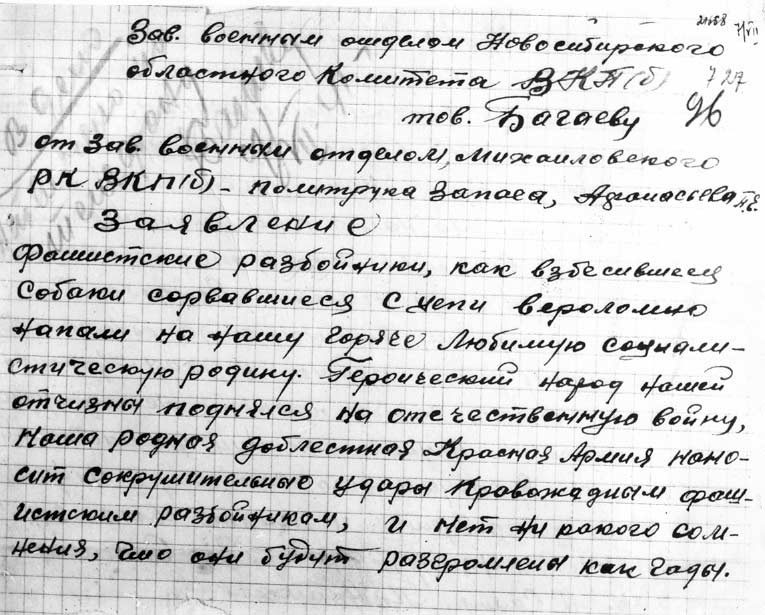 7/VII
727
96
В дело
Зав. военным отделом Новосибирского
областного Комитета ВКП(б)
тов. Багаеву
от Зав. военным отделом, Михайловского
РК ВКП(б) - политрука запаса, Афанасьева
Заявление
Фашистские разбойники, как взбесившиеся
собаки сорвавшиеся с цепи вероломно
напали на нашу горяче любимую социали-
стическую родину. Героический народ нашей
отчизны поднялся на отечественную войну,
наша родная доблестная Красная Армия нано-
сит сокрушительные удары кровожадным фаш-
истским разбойникам, и нет ни какого сом-
нения, что они будут разгромлены как гады.